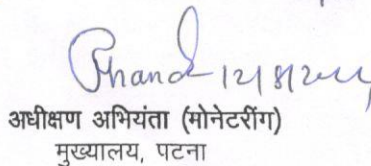 अधीक्षण अभियंता (मोनेटरींग)
मुख्यालय, पटना